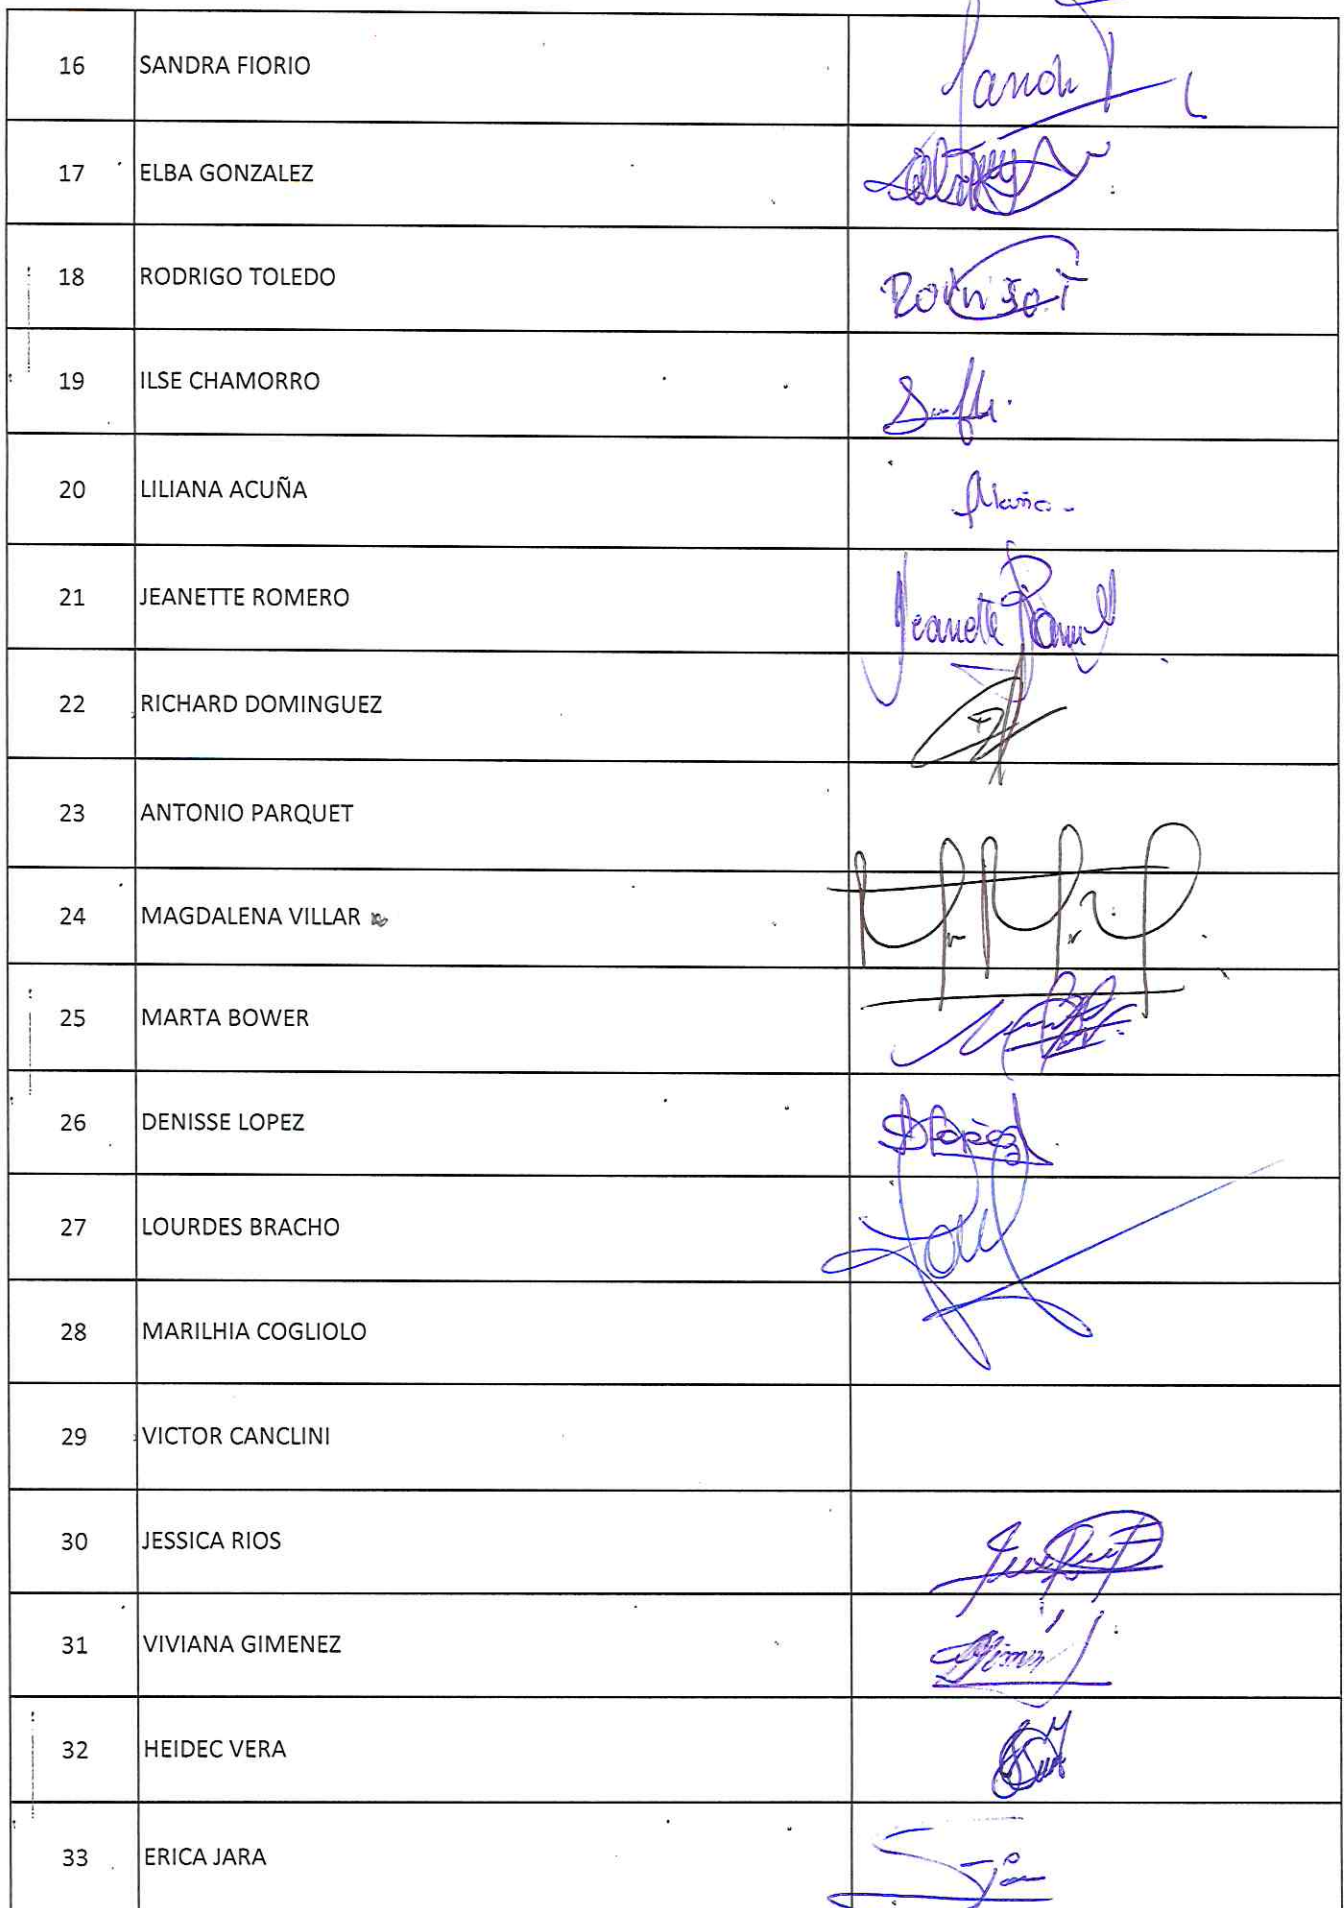 16 SANDRA FIORIO Sandr
17 ELBA GONZALEZ
18 RODRIGO TOLEDO
19 ILSE CHAMORRO
20 LILIANA ACUÑA
21 JEANETTE ROMERO Jeanette
22 RICHARD DOMINGUEZ
23 ANTONIO PARQUET
24 MAGDALENA VILLAR
25 MARTA BOWER
26 DENISSE LOPEZ DLopez
27 LOURDES BRACHO
28 MARILHIA COGLIOLO
29 VICTOR CANCLINI
30 JESSICA RIOS
31 VIVIANA GIMENEZ
32 HEIDEC VERA
33 ERICA JARA